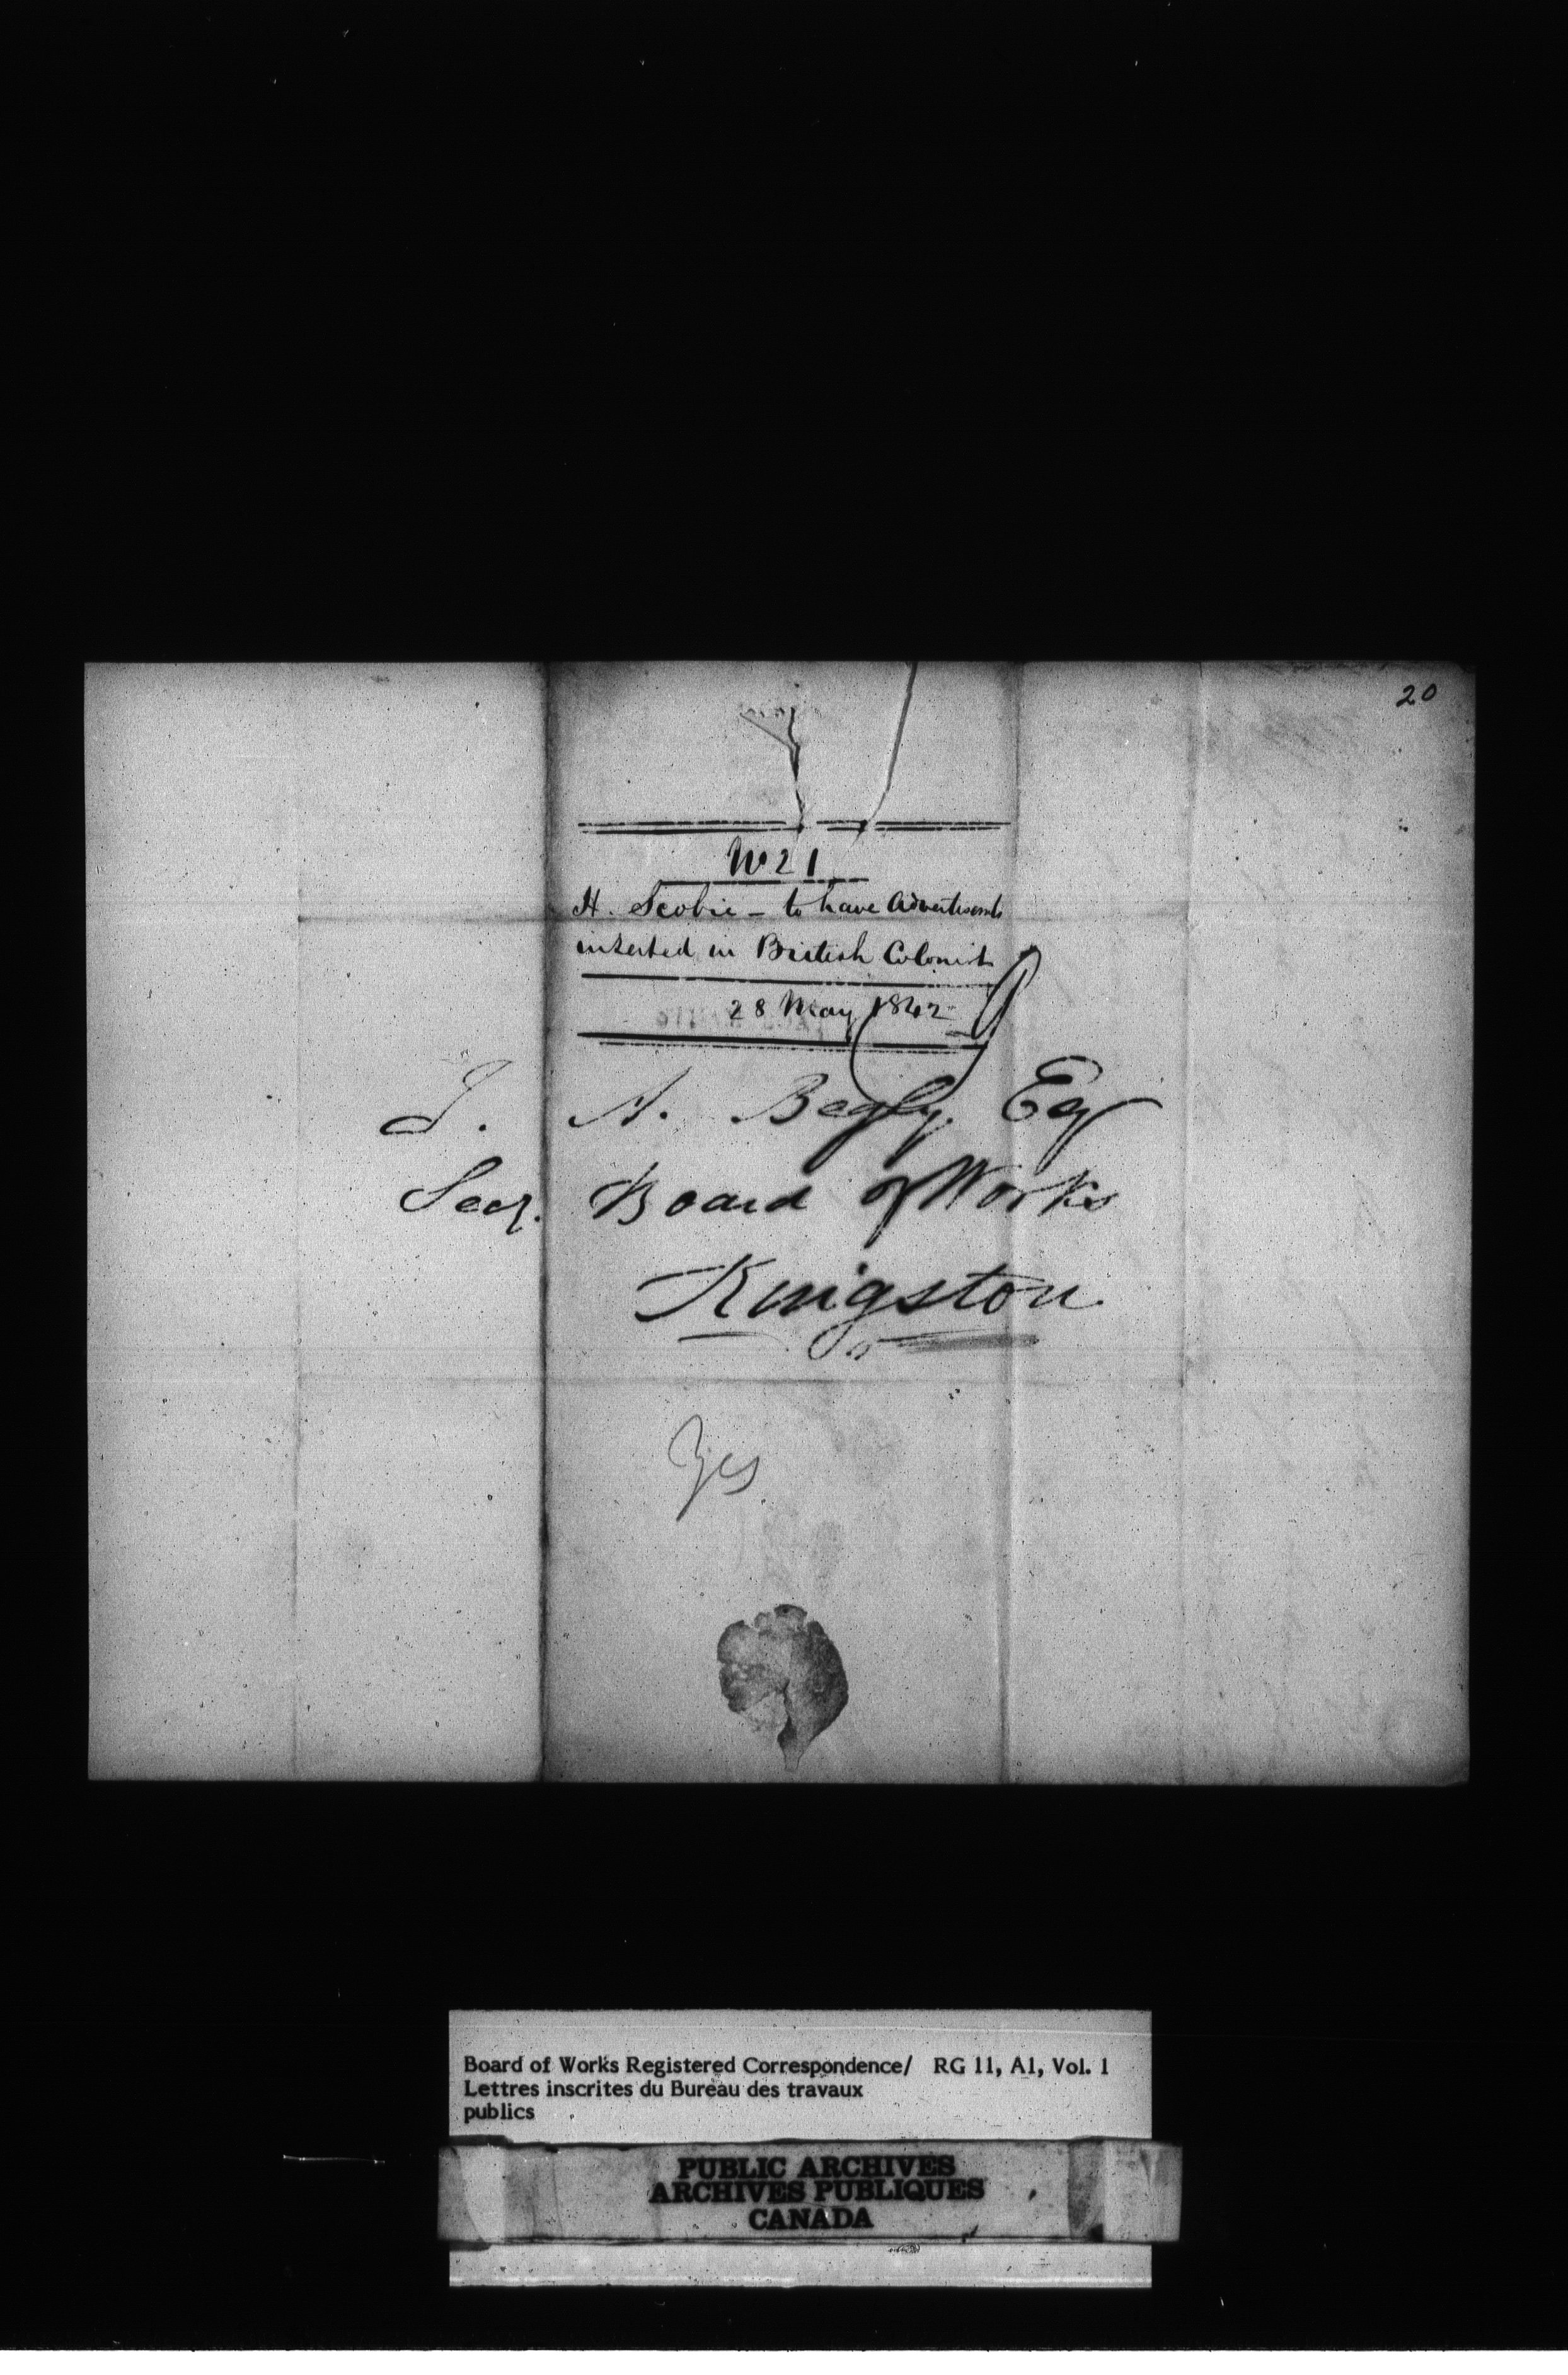 20
No 21
H. Scobie - to have Advertisements
inserted in British Colonist
28 May 1842
T. A. Begly. Esq
Secy. Board of Works
Kingston
Yes
Board of Works Registered Correspondence/ RG 11, A1, Vol. 1
Lettres inscrites du Bureau des travaux
publics
PUBLIC ARCHIVES
ARCHIVES PUBLIQUES
CANADA